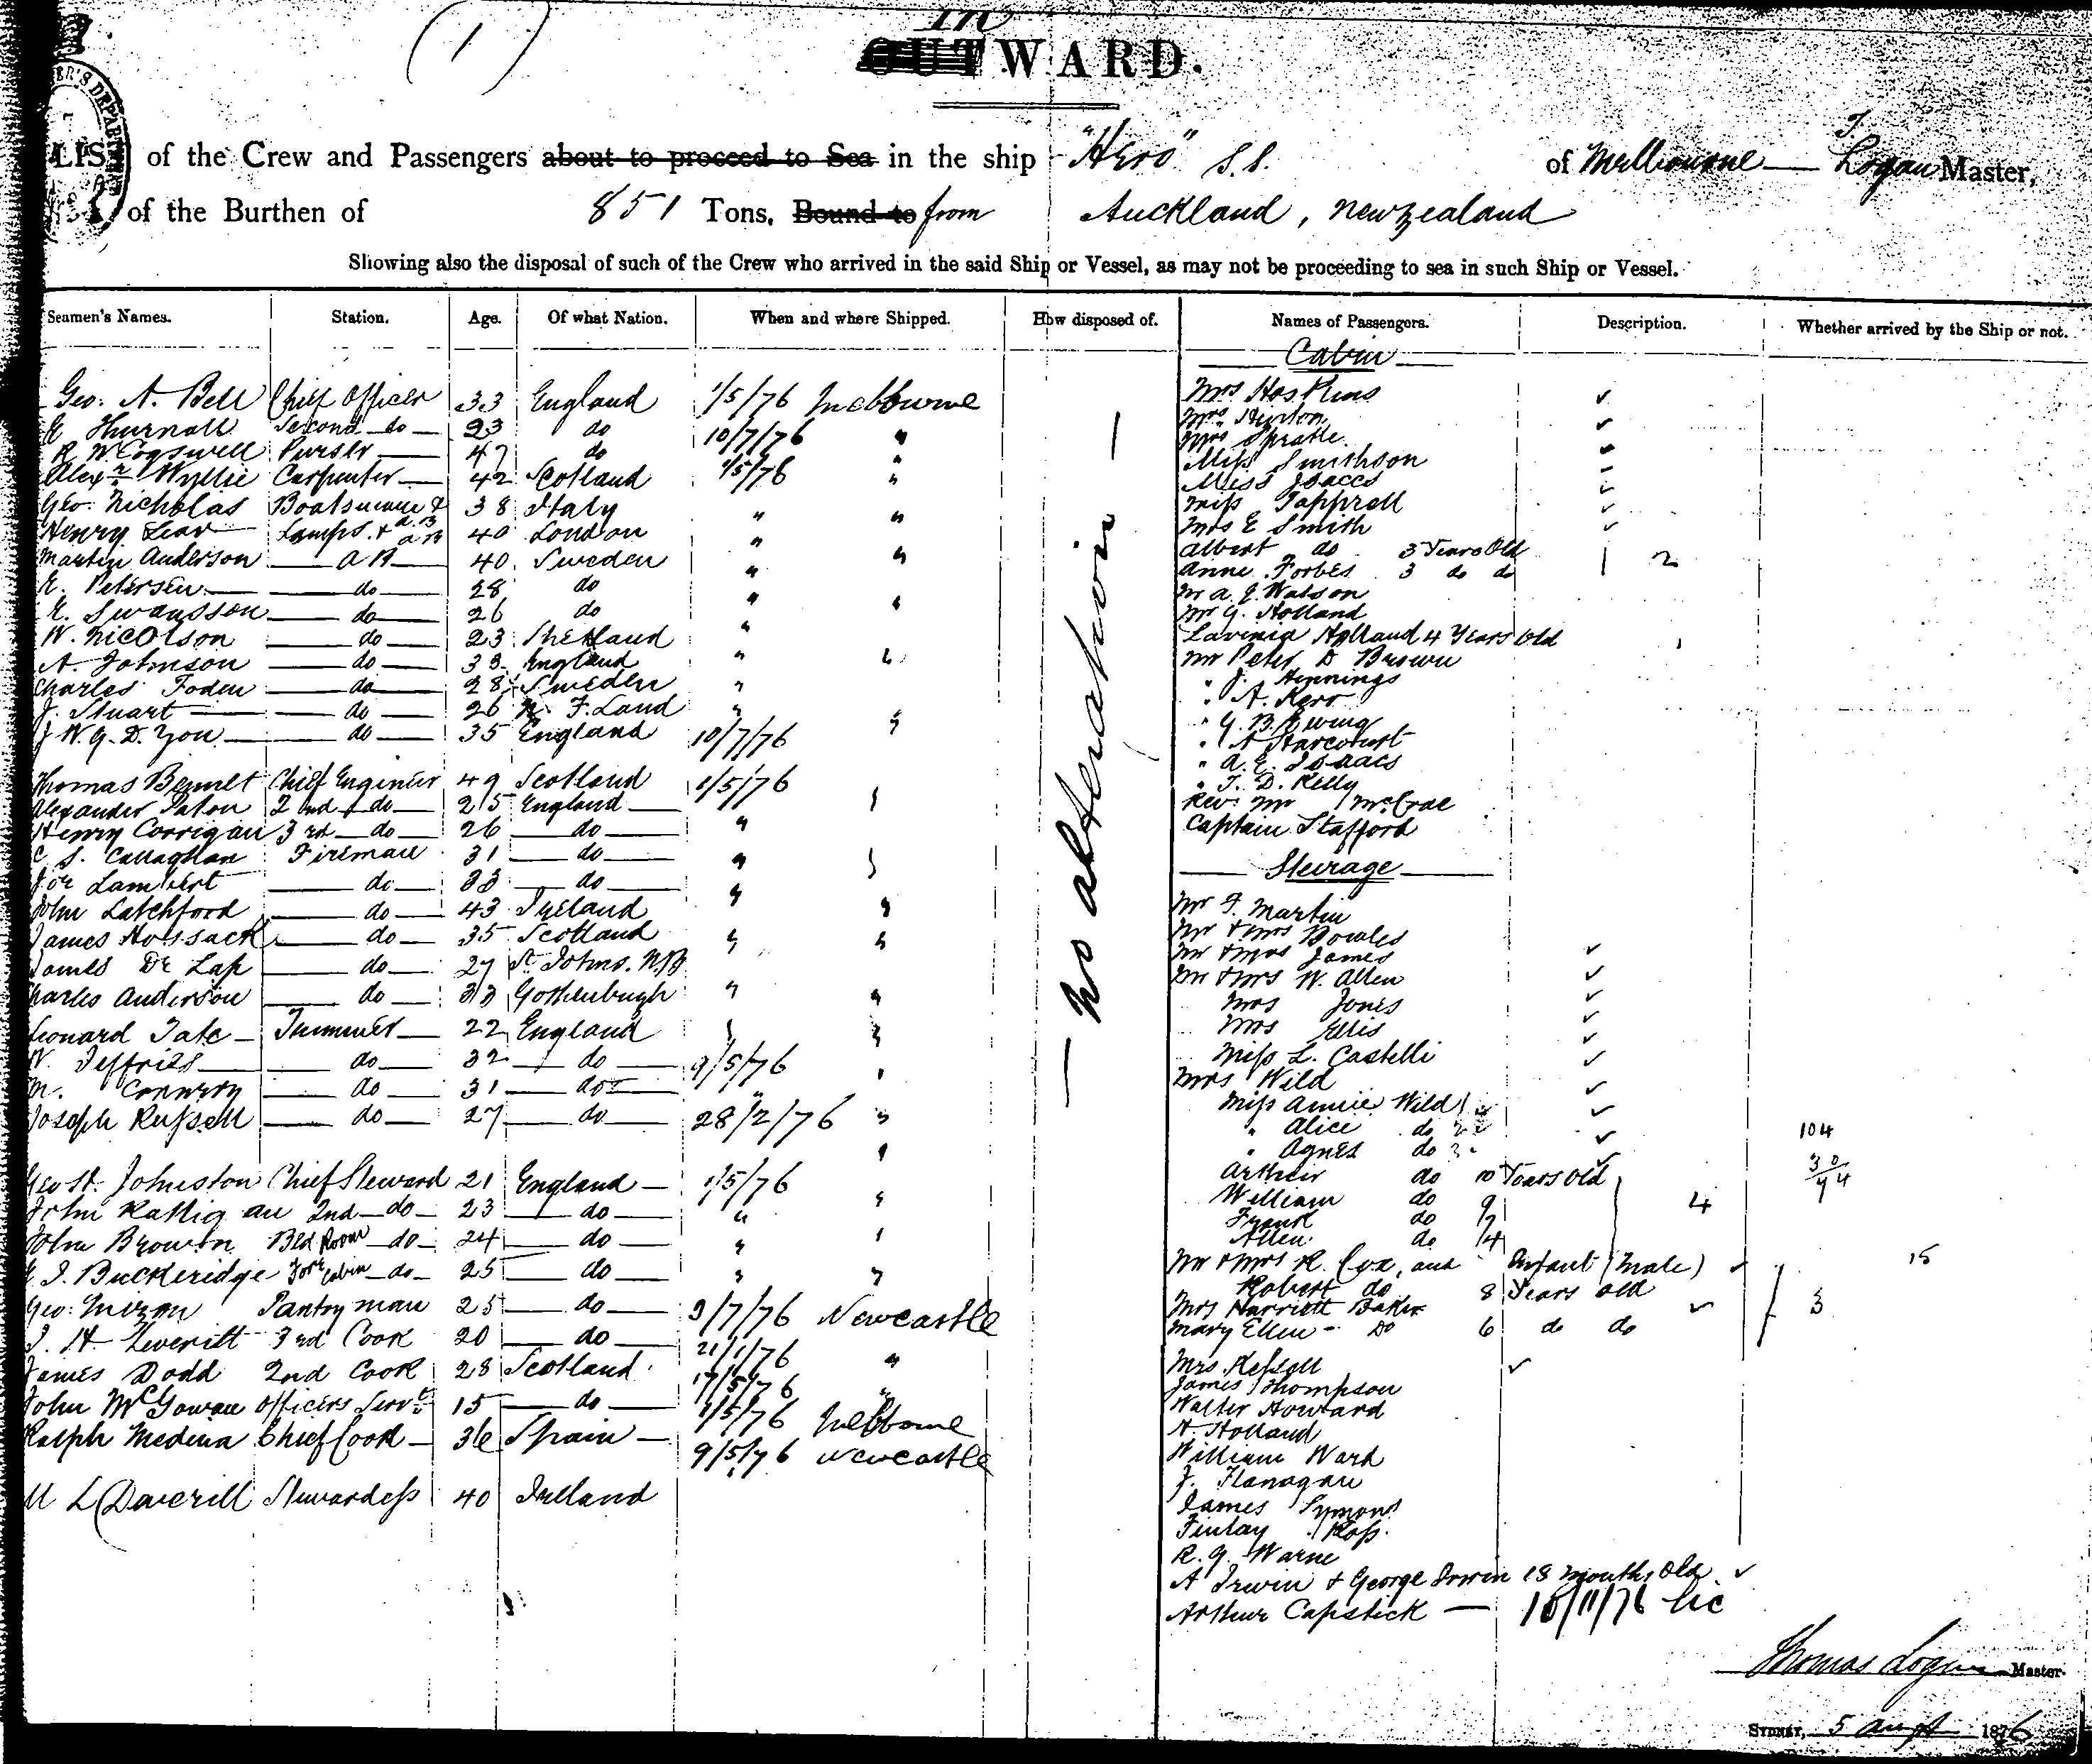 (1)
In
OUTWARD.
LIST of the Crew and Passengers about to proceed to Sea in the ship "Hero" S.S. of Melbourne — T. Logan Master,
of the Burthen of 851 Tons, Bound to from Auckland, New Zealand
Showing also the disposal of such of the Crew who arrived in the said Ship or Vessel, as may not be proceeding to sea in such Ship or Vessel.
Seamen's Names. Station. Age. Of what Nation. When and where Shipped. How disposed of. Names of Passengers. Description. Whether arrived by the Ship or not.
Geo. A. Bell Chief Officer 33 England 1/5/76 Melbourne
E Thurnall Second do 23 do 10/7/76 "
R W Cogswell Purser 47 do "
Alexr Wyllie Carpenter 42 Scotland 1/5/76 "
Geo. Nicholas Boatswain & AB 38 Italy " "
Henry Lear Lamps. & AB 40 London "
Martin Anderson AB 40 Sweden " "
E. Petersen do 28 do "
E. Swansson do 26 do " "
W. Nicolson do 23 Shetland "
A. Johnson do 33 England " "
Charles Foden do 28 Sweden "
J. Stuart do 26 N. F. Land " "
J W. G. D. You do 35 England 10/7/76
Thomas Bennet Chief Engineer 49 Scotland 1/5/76
Alexander Paton 2nd do 25 England
Henry Corrigan 3rd do 26 do "
C S. Callaghan Fireman 31 do "
Joe Lambert do 33 do "
John Latchford do 43 Ireland "
James Hossack do 35 Scotland " "
James De Lap do 27 St Johns. N.B.
Charles Anderson do 33 Gothenburgh " "
Leonard Tate Trimmer 22 England
W. Jeffries do 32 do 9/5/76
M. Conwroy do 31 do "
Joseph Russell do 27 do 28/2/76 "
Geo H. Johnston Chief Steward 21 England 1/5/76
John Rattigan 2nd do 23 do " "
John Browin Bed Room do 24 do "
G. J. Buckeridge Fore Cabin do 25 do " "
Geo: Mizon Pantry man 25 do 9/7/76 Newcastle
J. H. Leveritt 3rd Cook 20 do 21/1/76 "
James Dodd 2nd Cook 28 Scotland 17/5/76 "
John McGowan Officers Servt 15 do 1/5/76 Melbourne
Ralph Medina Chief Cook 36 Spain 9/5/76 Newcastle
M L Daverill Stewardess 40 Ireland
— No alteration —
Cabin
Mrs Hoskins
Mrs Hinton
Mrs Spratte
Miss Smithson
Miss Isaacs
Miss Tapprell
Mrs E Smith
Albert do 3 Years Old
Anne Forbes 3 do do 2
Mr A. J. Watson
Mr G. Holland
Lavinia Holland 4 Years Old
Mr Peter D Brown
" J. Hennings
" A. Kerr
" G. B. Ewing
" A Harcourt
" A. E. Isaacs
" T. D. Kelly
Rev: Mr McCrae
Captain Stafford
Steerage
Mr F. Martin
Mr & Mrs Bowles
Mr & Mrs James
Mr & Mrs W. Allen
Mrs Jones
Mrs Ellis
Miss L. Castelli
Mrs Wild
Miss Annie Wild 1
" Alice do 2
" Agnes do 3
Arthur do 10 Years Old
William do 9
Frank do 7
Allen do 4
4
104
30
15
Mr & Mrs R. Cox, and Infant (Male)
Robert do 8 Years old
Mrs Harriett Baker
Mary Ellen Do 6 do do
3
Mrs. Kelsall
James Thompson
Walter Howard
A. Holland
William Ward
J. Flanagan
James Symons
Finlay Ross.
R. G. Warne
A Irwin & George Irwin 18 months Old
Arthur Capstick
Thomas Logan Master.
SYDNEY, 5 Augt 1876